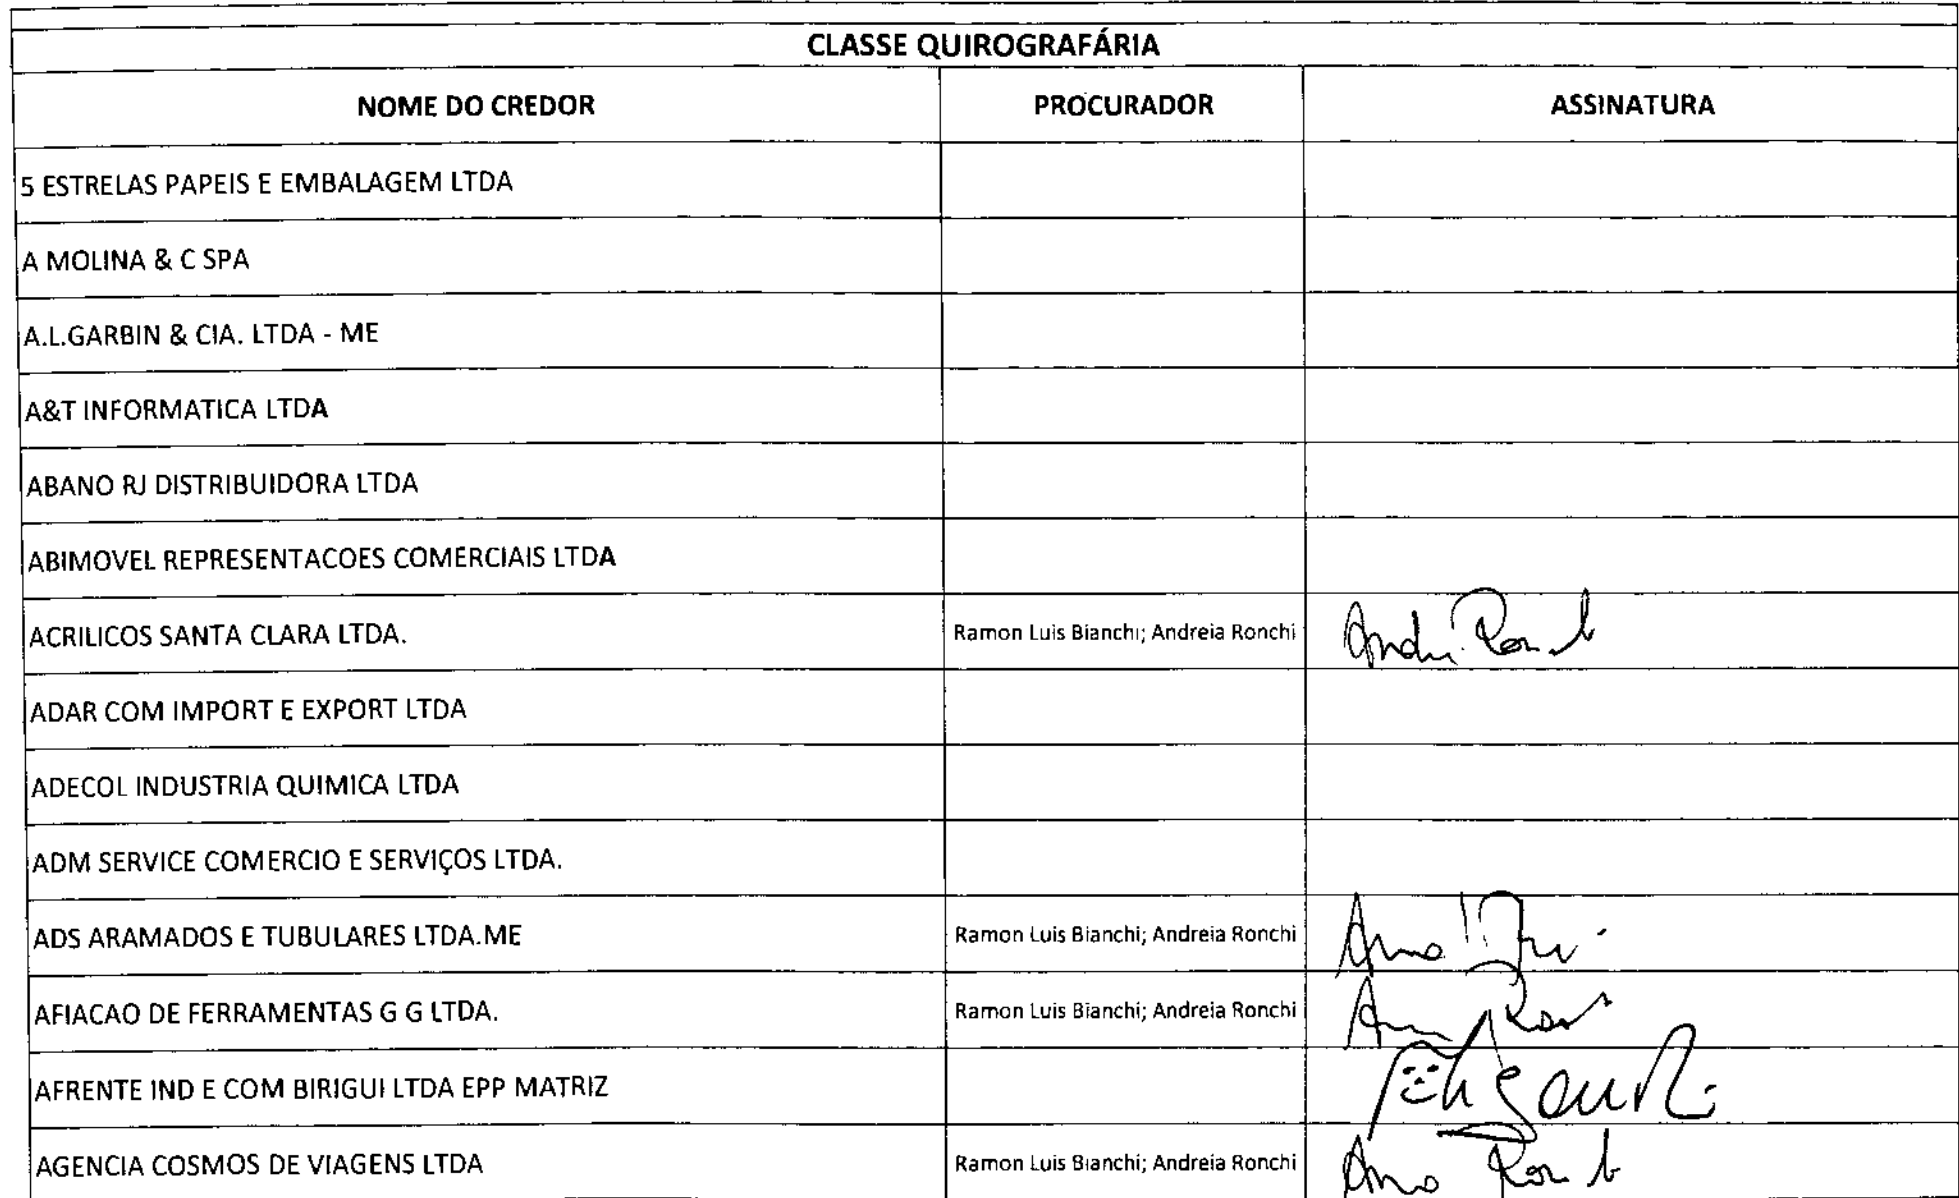 CLASSE QUIROGRAFÁRIA
NOME DO CREDOR PROCURADOR ASSINATURA
5 ESTRELAS PAPEIS E EMBALAGEM LTDA
A MOLINA & C SPA
A.L.GARBIN & CIA. LTDA - ME
A&T INFORMATICA LTDA
ABANO RJ DISTRIBUIDORA LTDA
ABIMOVEL REPRESENTACOES COMERCIAIS LTDA
ACRILICOS SANTA CLARA LTDA. Ramon Luis Bianchi; Andreia Ronchi
ADAR COM IMPORT E EXPORT LTDA
ADECOL INDUSTRIA QUIMICA LTDA
ADM SERVICE COMERCIO E SERVIÇOS LTDA.
ADS ARAMADOS E TUBULARES LTDA.ME Ramon Luis Bianchi; Andreia Ronchi
AFIACAO DE FERRAMENTAS G G LTDA. Ramon Luis Bianchi; Andreia Ronchi
AFRENTE IND E COM BIRIGUI LTDA EPP MATRIZ
AGENCIA COSMOS DE VIAGENS LTDA Ramon Luis Bianchi; Andreia Ronchi